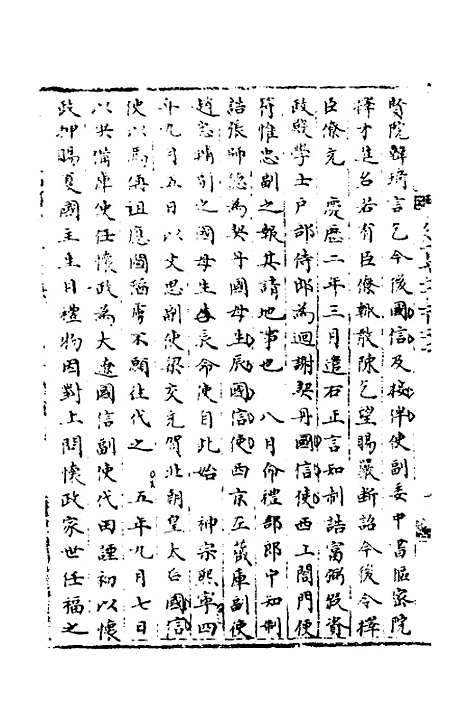 賢院韓琦言乞今後國信及接伴使副委中書樞密院
擇才進名若有臣僚輙敢陳乞望賜嚴斷詔今後令擇
臣僚充　慶曆二年三月遣右正言知制誥富弼假資
政殿學士户部侍郎為迴謝契丹國信使西上閤門使
符惟忠副之報其請地事也　八月命禮部郎中知制
誥張師德為契丹國母生辰國信使西京左藏庫副使
副之國母生辰命使自此始　神宗熙寧四
年九月五日以文思副使梁交充賀北朝皇太后國信
使以馬偁詛應闍不願往代之　五年九月七日
以供備庫使任懷政為大遼國信副使代田諲初以懷
政押賜夏國主生日禮物因對上問懷政家世任福之